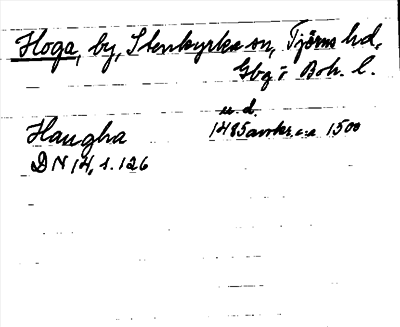 Hoga, by, Stenkyrka sn, Tjörns hd,
Gbg o Boh. l.
u. d.
Haugha 1485 avskr. c:a 1500
DN 14, s. 126